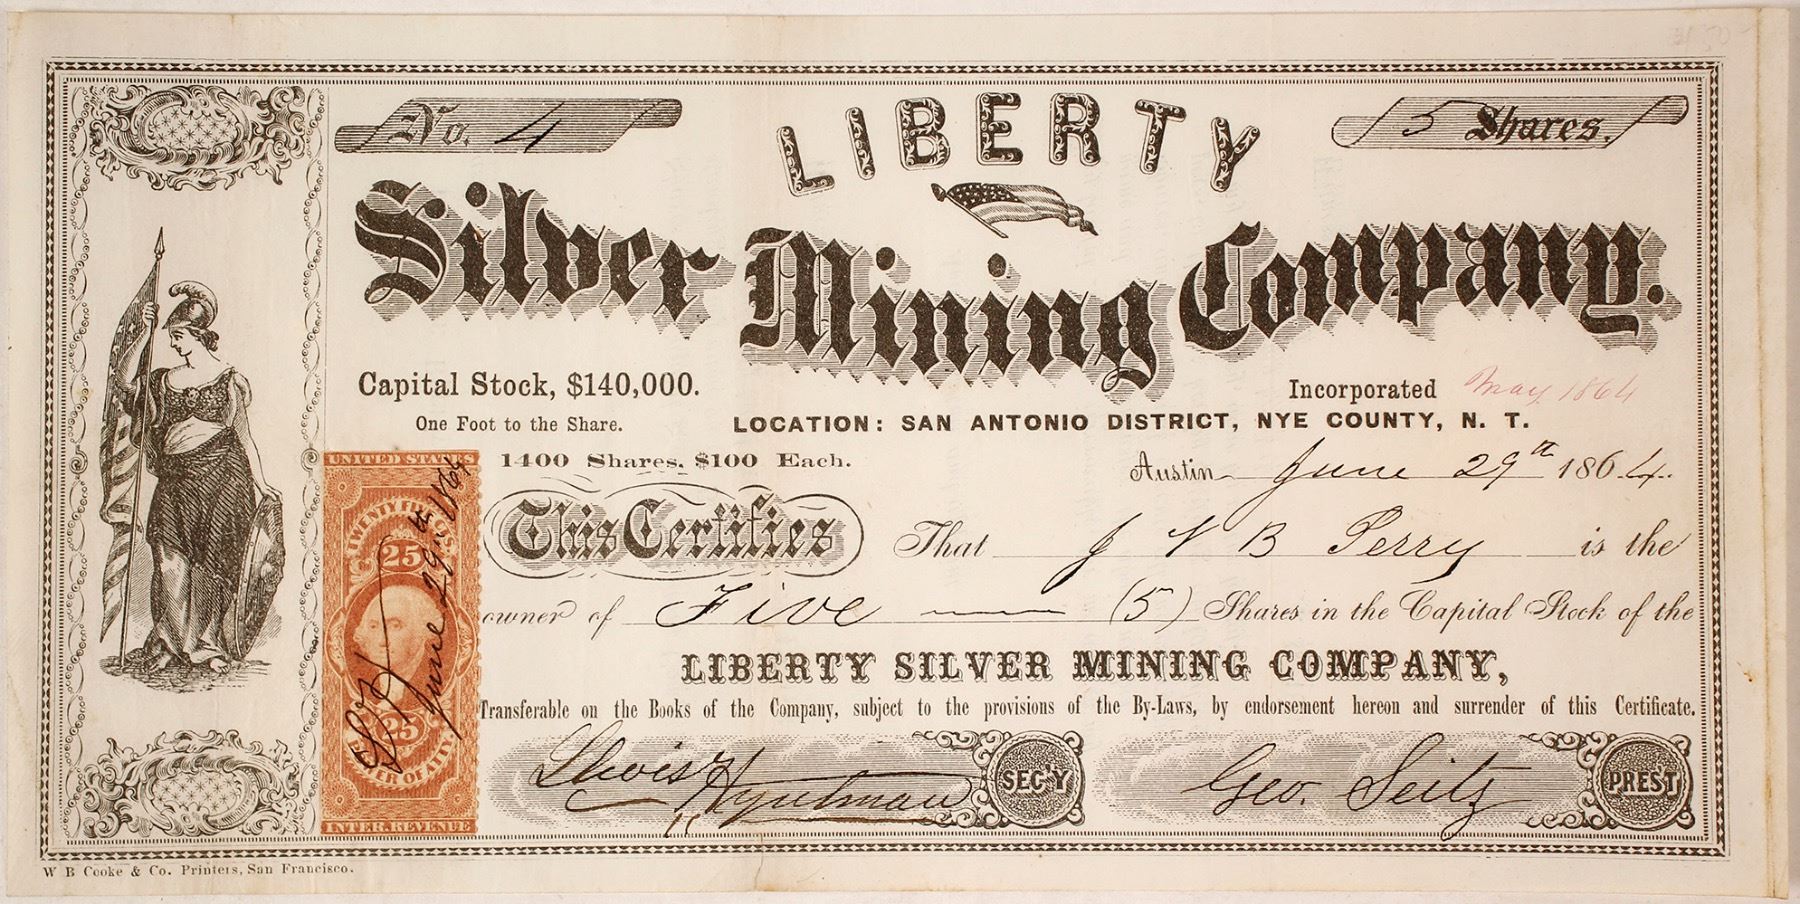 No. 4
LIBERTY
5 Shares.
Silver Mining Company.
Capital Stock, $140,000.
Incorporated May 1864
One Foot to the Share.
LOCATION: SAN ANTONIO DISTRICT, NYE COUNTY, N. T.
1400 Shares, $100 Each.
Austin June 29th 1864.
This Certifies That J V B Perry is the
owner of Five (5) Shares in the Capital Stock of the
LIBERTY SILVER MINING COMPANY,
Transferable on the Books of the Company, subject to the provisions of the By-Laws, by endorsement hereon and surrender of this Certificate.
SEC'Y
Geo. Seitz PRES'T
UNITED STATES
25
June 29th 1864
25
INTER. REVENUE
W B Cooke & Co. Printers, San Francisco.